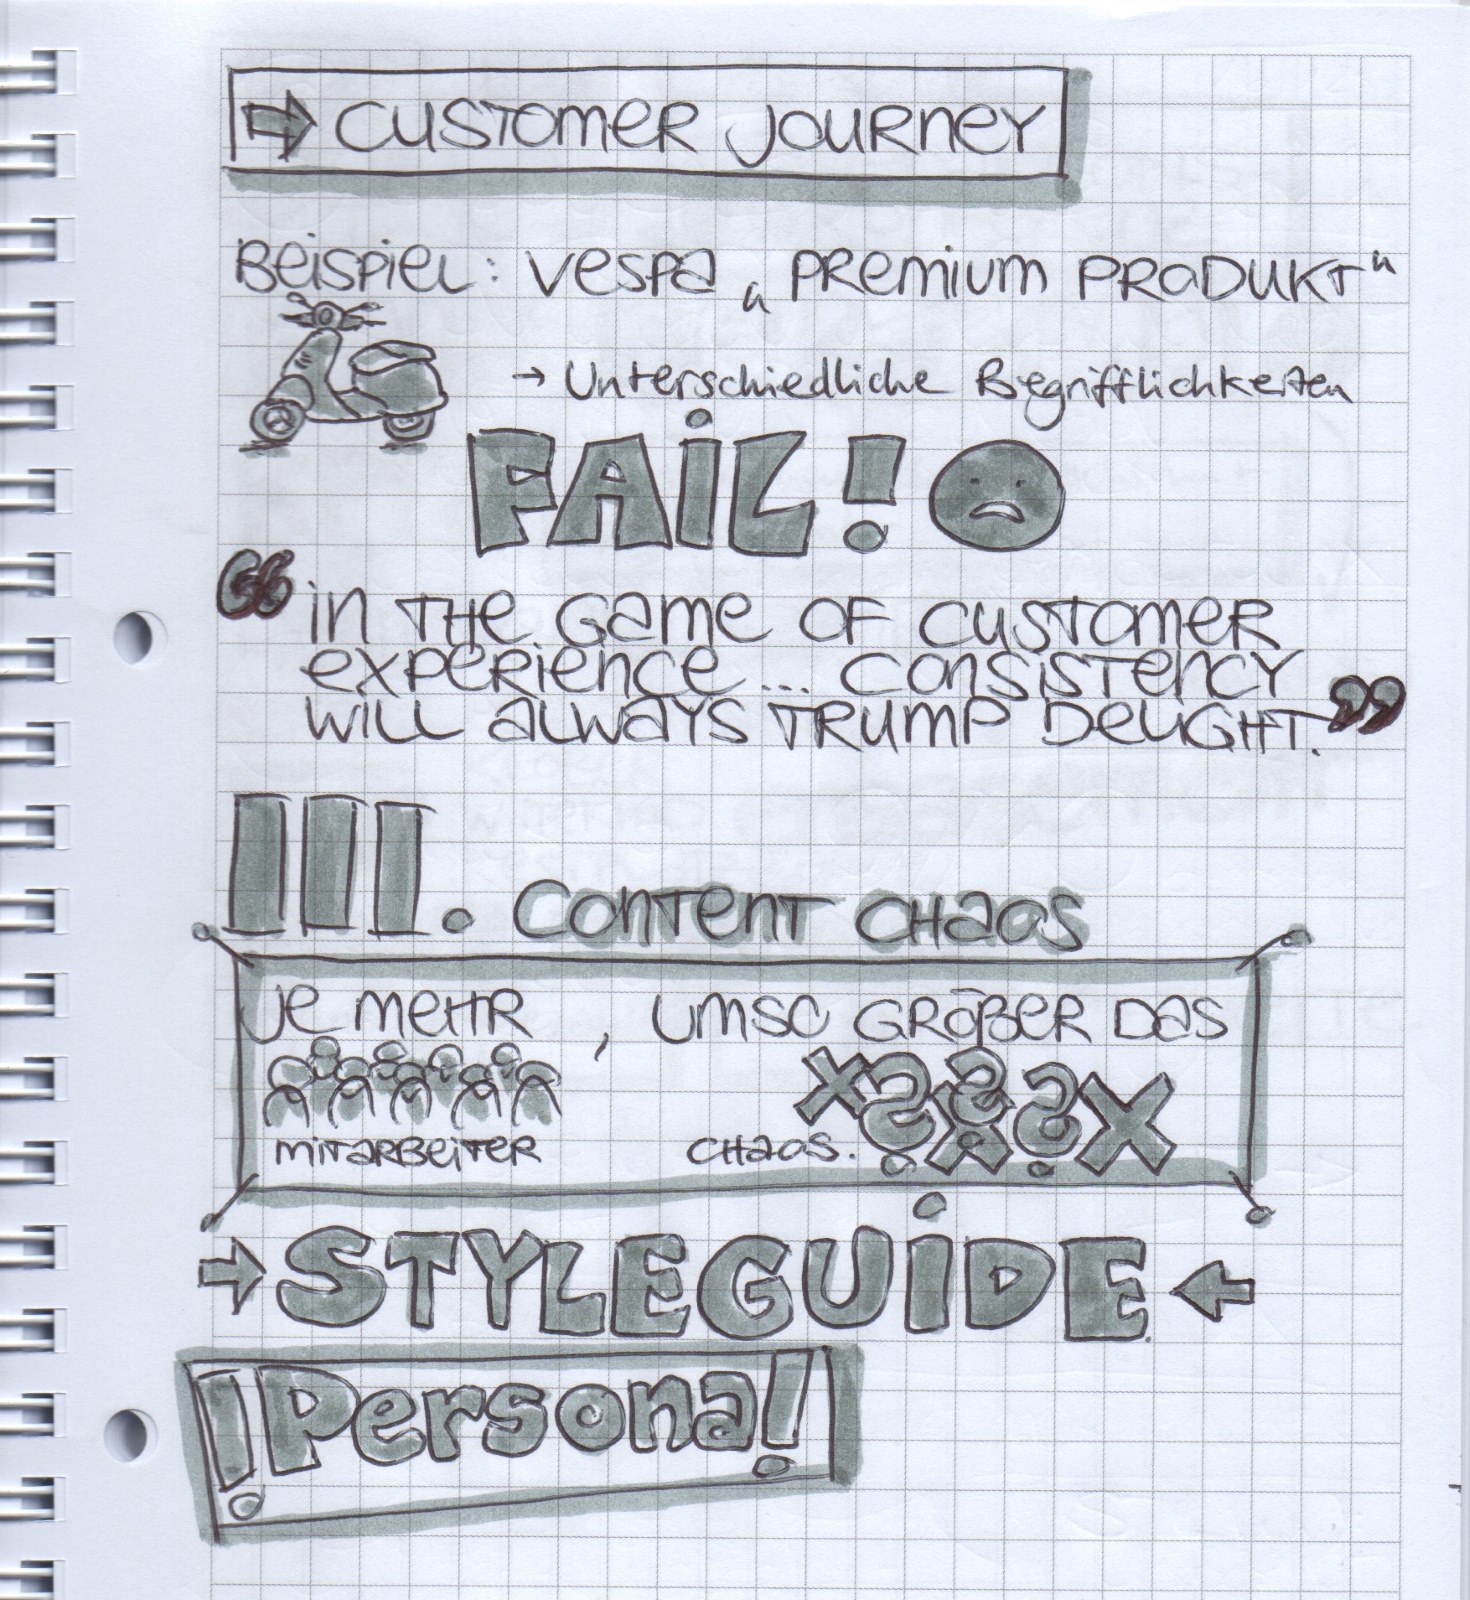 ⇨ CUSTOMER JOURNEY
Beispiel: Vespa „Premium Produkt“
→ Unterschiedliche Begrifflichkeiten
FAIL!
“In the game of customer
experience... consistency
will always trump delight.”
III. Content Chaos
Je mehr, umso größer das
Mitarbeiter Chaos.
⇨ STYLEGUIDE ⇦
!Persona!